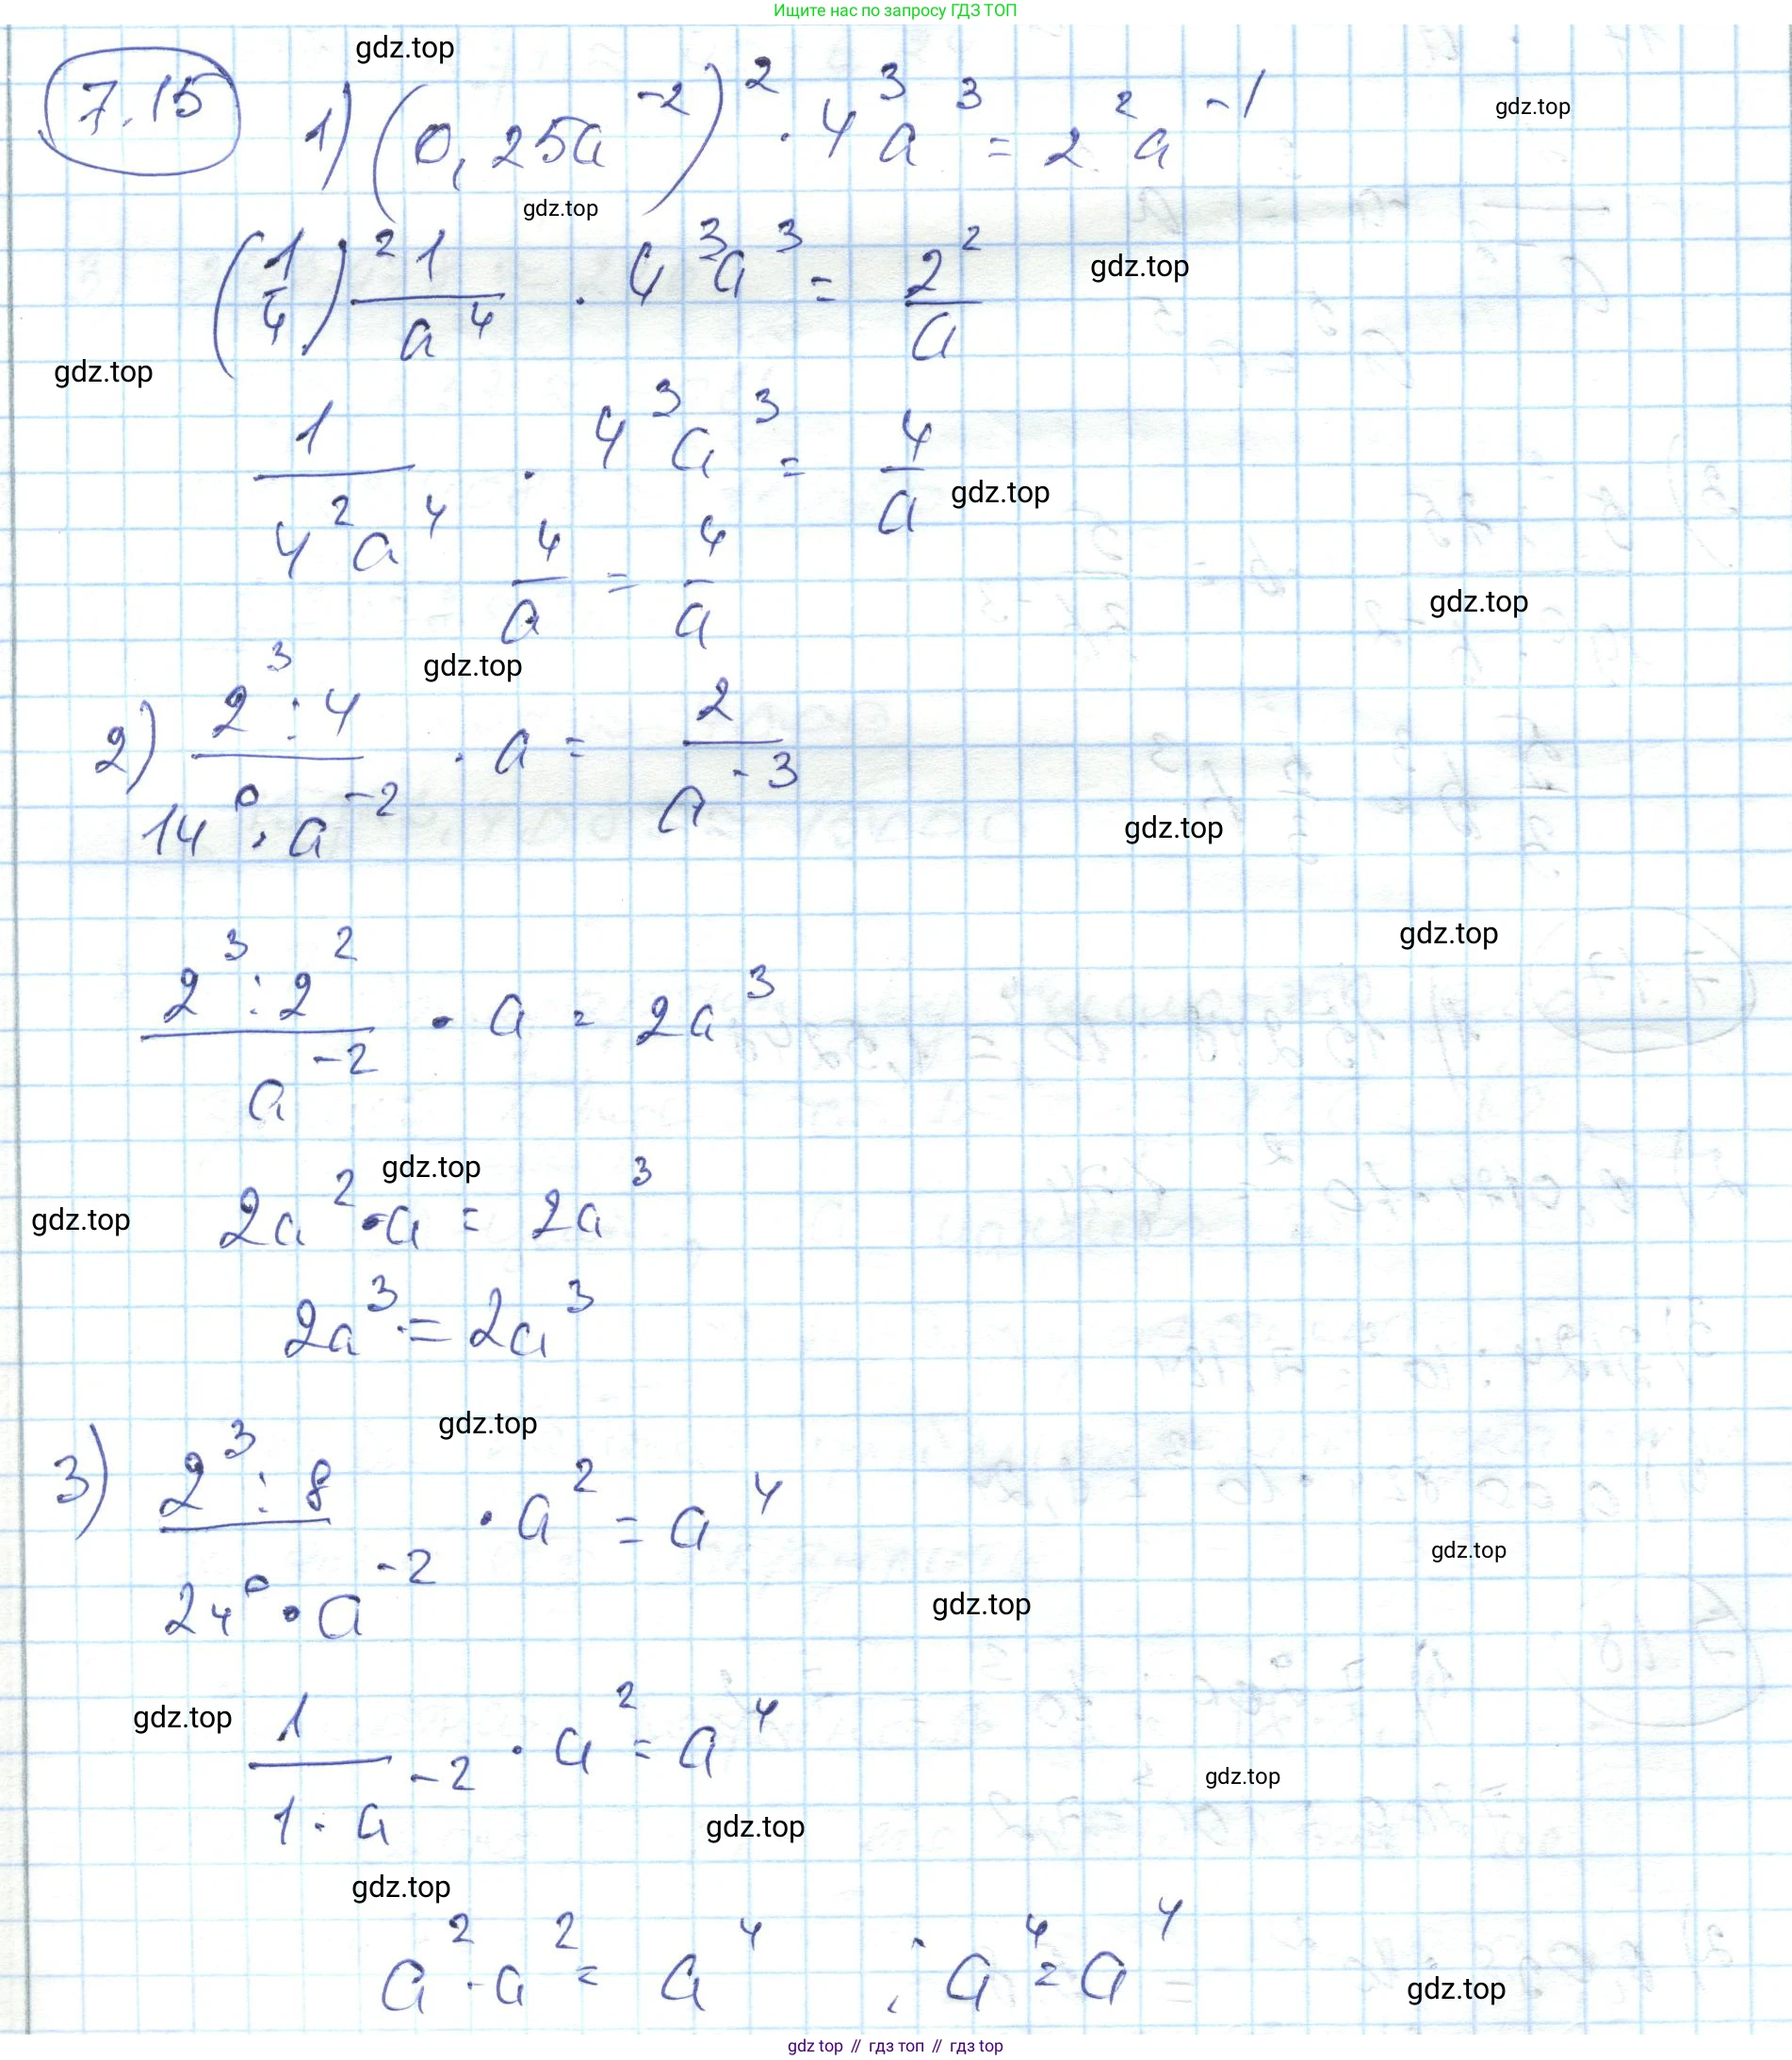 Ищите нас по запросу ГДЗ ТОП
gdz.top
7.15 1) (0,25a^-2)^2 · 4^3 a^3 = 2^2 a^-1
gdz.top
gdz.top
(1/4)^2 1/a^4 · 4^3 a^3 = 2^2/a
gdz.top
gdz.top
1/(4^2 a^4) · 4^3 a^3 = 4/a
gdz.top
4/a = 4/a
gdz.top
gdz.top
2) (2^3 : 4)/(14^0 · a^-2) · a = 2/a^-3
gdz.top
gdz.top
(2^3 : 2^2)/a^-2 · a = 2a^3
gdz.top
gdz.top
2a^2 · a = 2a^3
2a^3 = 2a^3
gdz.top
3) (2^3 : 8)/(24^0 · a^-2) · a^2 = a^4
gdz.top
gdz.top
gdz.top
1/(1 · a^-2) · a^2 = a^4
gdz.top
gdz.top
gdz.top
a^2 · a^2 = a^4 ; a^4 = a^4
gdz.top
gdz top // гдз топ // гдз top